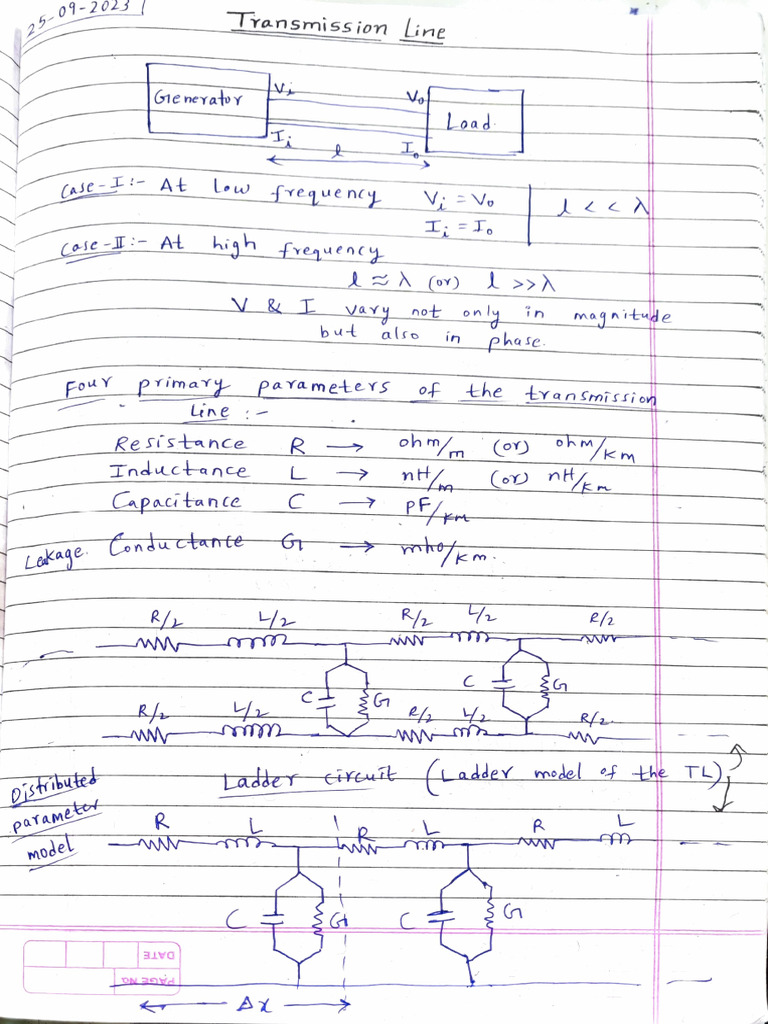 25-09-2023
Transmission Line
Generator Vi Vo Load
Ii l Io
Case-I:- At low frequency Vi = Vo l < < λ
Ii = Io
Case-II:- At high frequency
l ≈ λ (or) l >> λ
V & I vary not only in magnitude
but also in phase.
Four primary parameters of the transmission
Line :-
Resistance R → ohm/m (or) ohm/km
Inductance L → nH/m (or) nH/km
Capacitance C → pF/km
Leakage Conductance G → mho/km.
R/2 L/2 R/2 L/2 R/2
C G C G
R/2 L/2 R/2 L/2 R/2
Ladder circuit (Ladder model of the TL)
Distributed
parameter
model
R L R L R L
C G C G
DATE
PAGE NO
Δx